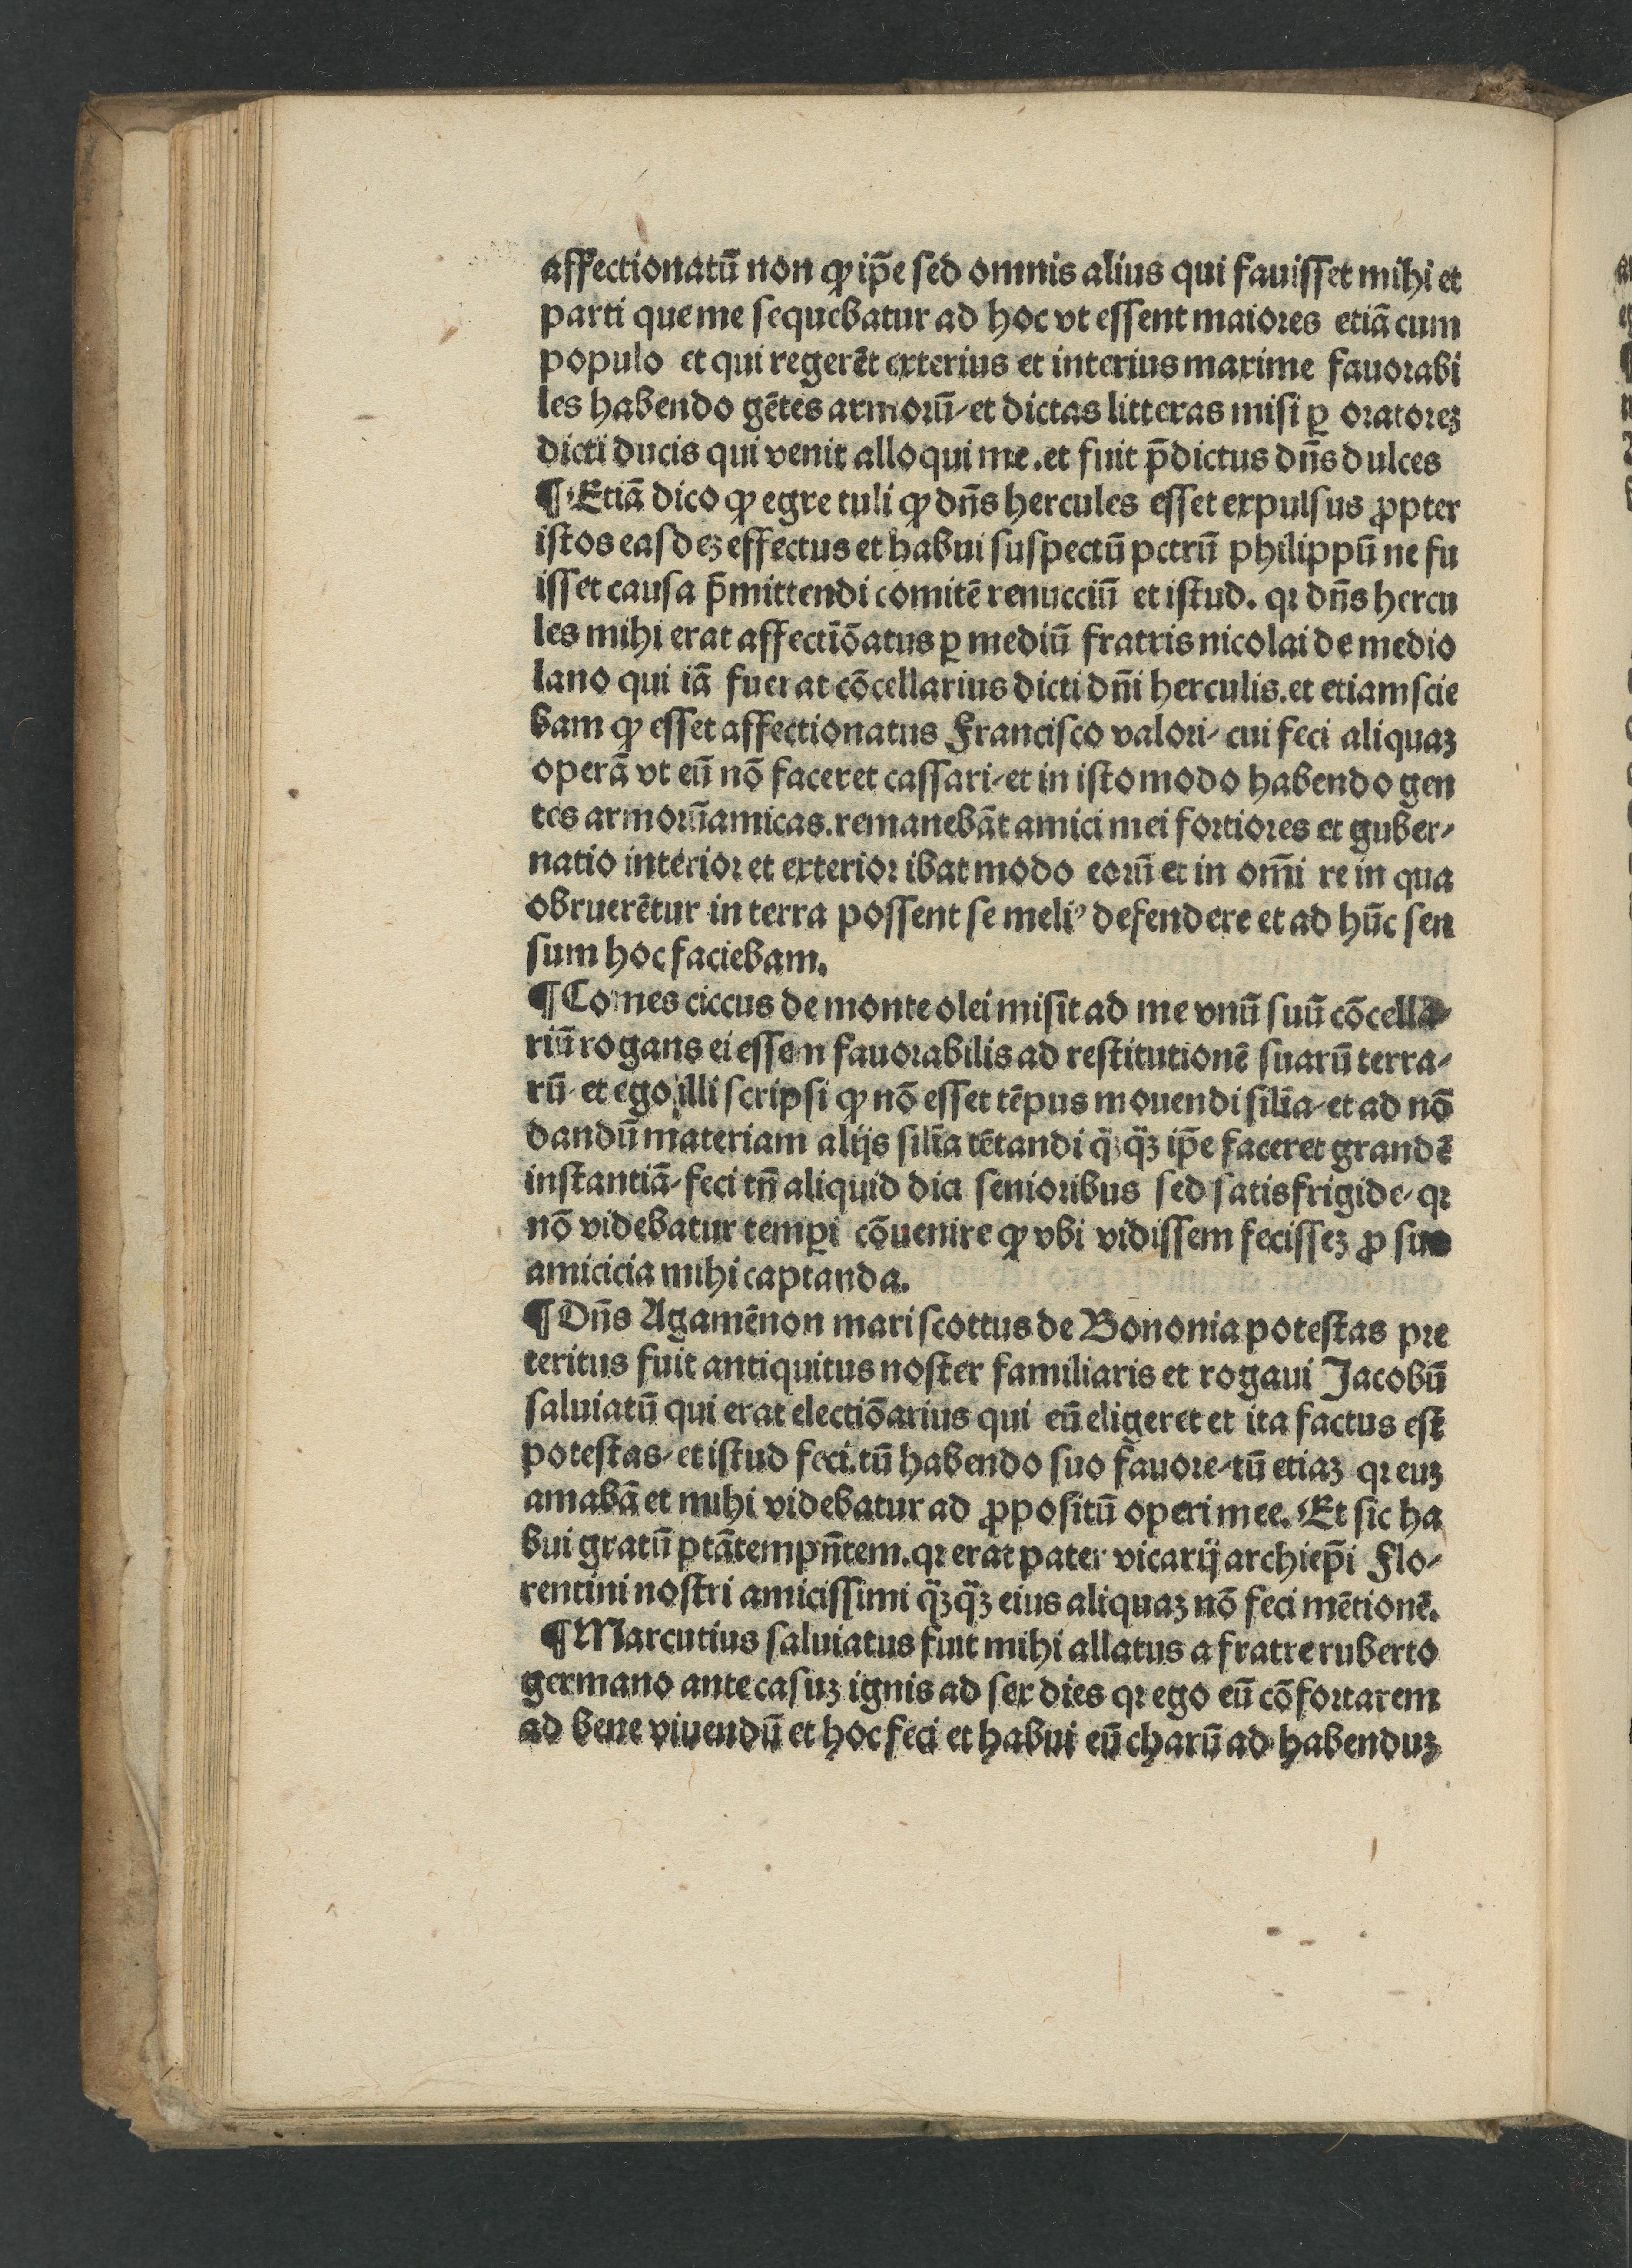 affectionatū non ꝙ ip̄e sed omnis alius qui fauisset mihi et
parti que me sequebatur ad hoc vt essent maiores etiā cum
populo et qui regerēt exterius et interius maxime fauorabi
les habendo gētes armorū-et dictas litteras misi ꝑ oratoreꝫ
dicti ducis qui venit alloqui me.et fuit p̄dictus dn̄s dulces
¶ Etiā dico ꝙ egre tuli ꝙ dn̄s hercules esset expulsus ꝓpter
istos easdeꝫ effectus et habui suspectū petrū philippū ne fu
isset causa p̄mittendi comitē renucciū et istud. qꝛ dn̄s hercu
les mihi erat affectiōatus ꝑ mediū fratris nicolai de medio
lano qui iā fuerat cōcellarius dicti dn̄i herculis.et etiam scie
bam ꝙ esset affectionatus Francisco valori-cui feci aliquaꝫ
operā vt eū nō faceret cassari-et in isto modo habendo gen
tes armorū amicas.remanebāt amici mei fortiores et guber-
natio interior et exterior ibat modo eorū et in om̄i re in qua
obruerētur in terra possent se meliꝰ defendere et ad hūc sen
sum hoc faciebam.
¶ Comes ciccus de monte olei misit ad me vnū suū cōcella-
riū rogans ei essem fauorabilis ad restitutionē suarū terra-
rū-et ego illi scripsi ꝙ nō esset tēpus mouendi sil̄ia-et ad nō
dandū materiam alijs sil̄ia tētandi q̄ꝫq̄ꝫ ip̄e faceret grandē
instantiā-feci tn̄ aliquid dici senioribus sed satis frigide-qꝛ
nō videbatur temꝑi cōuenire ꝙ vbi vidissem fecisseꝫ ꝓ sua
amicicia mihi captanda.
¶ Dn̄s Agamēnon mariscottus de Bononia potestas pre
teritus fuit antiquitus noster familiaris et rogaui Jacobū
saluiatū qui erat electiōarius qui eū eligeret et ita factus est
potestas-et istud feci.tū habendo suo fauore-tū etiaꝫ qꝛ euꝫ
amabā et mihi videbatur ad ꝓpositū operi mee. Et sic ha
bui gratū ptātem pn̄tem.qꝛ erat pater vicarij archiep̄i Flo-
rentini nostri amicissimi q̄ꝫq̄ꝫ eius aliquaꝫ nō feci mētionē.
¶ Marcutius saluiatus fuit mihi allatus a fratre ruberto
germano ante casuꝫ ignis ad sex dies qꝛ ego eū cōfortarem
ad bene viuendū et hoc feci et habui eū charū ad habenduꝫ